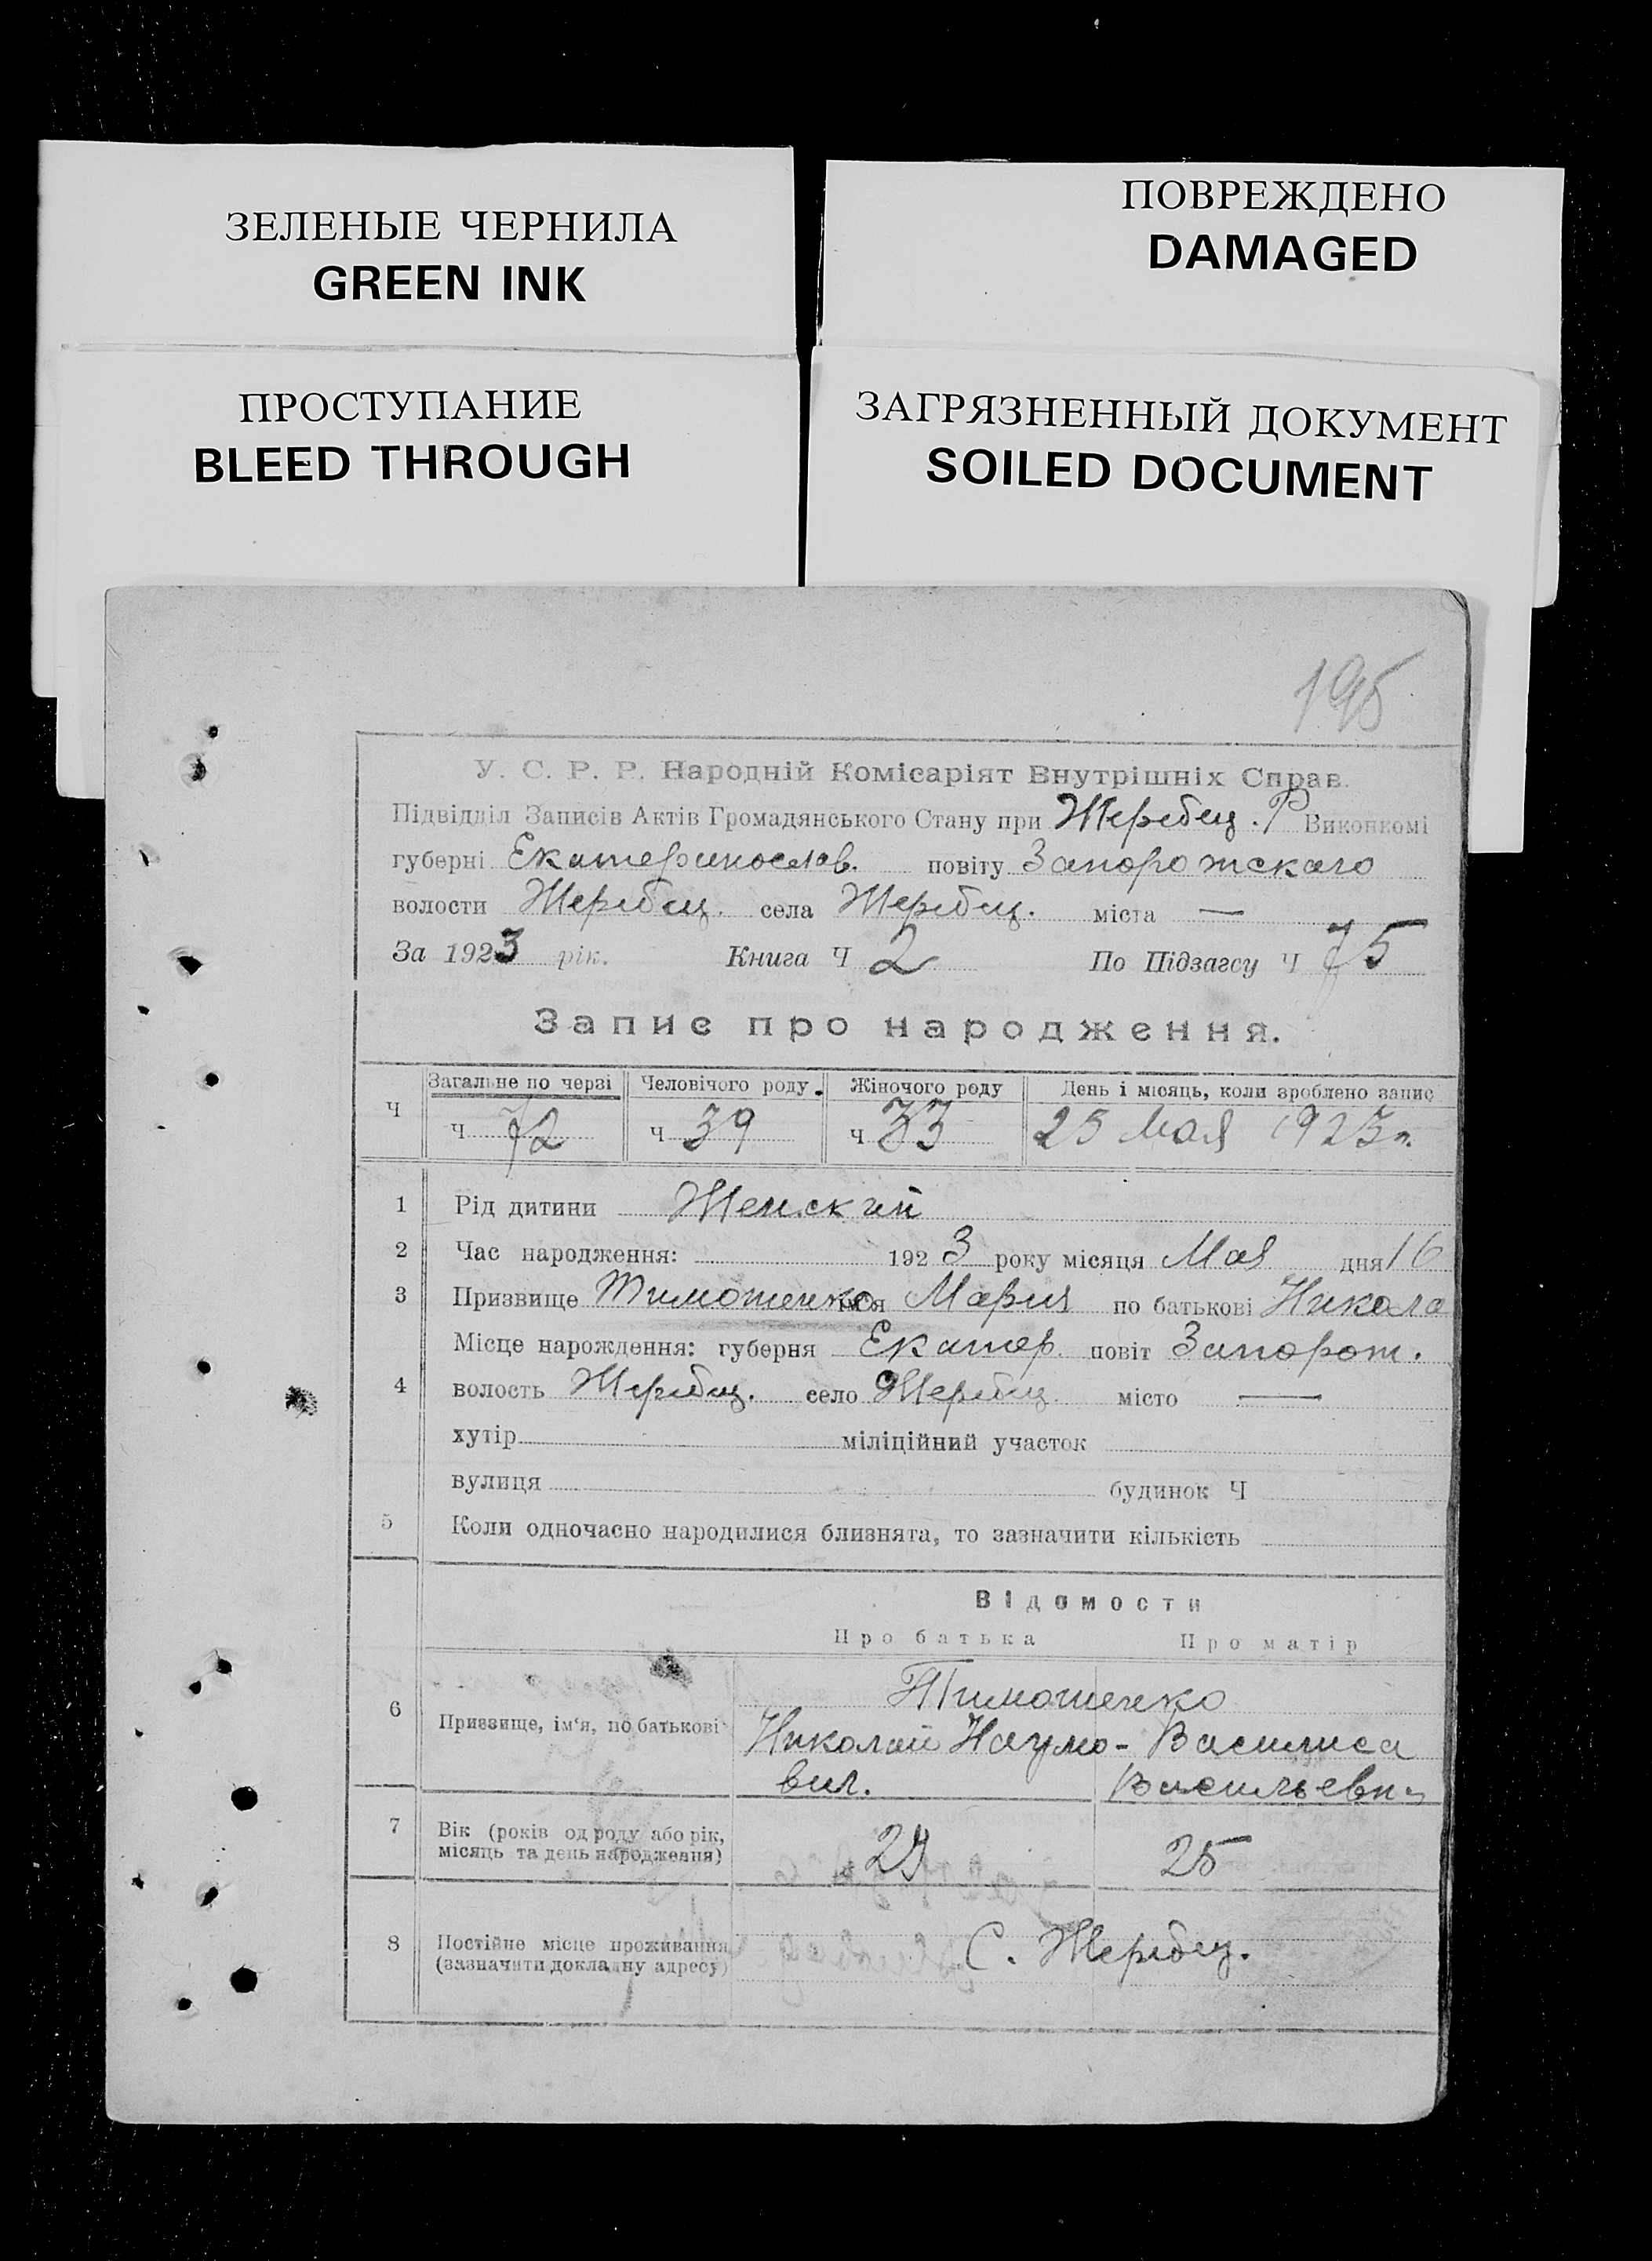 ЗЕЛЕНЫЕ ЧЕРНИЛА
GREEN INK
ПОВРЕЖДЕНО
DAMAGED
ПРОСТУПАНИЕ
BLEED THROUGH
ЗАГРЯЗНЕННЫЙ ДОКУМЕНТ
SOILED DOCUMENT
195
У. С. Р. Р. Народній Комісаріят Внутрішніх Справ.
Підвідділ Записів Актів Громадянського Стану при Жеребец. Р Виконкомі
губерні Екатеринослав. повіту Запорожскаго
волости Жеребец. села Жеребец. міста —
За 1923 рік. Книга Ч 2 По Підзагсу Ч 75
Запис про народження.
Загальне по черзі Человічого роду. Жіночого роду День і місяць, коли зроблено запис
Ч Ч 72 Ч 39 Ч 33 25 Мая 1923 г.
1 Рід дитини Женский
2 Час народження: 1923 року місяця Мая дня 16
3 Призвище Тимошенко ім'я Мария по батькові Никола
Місце нарождення: губерня Екатер. повіт Запорож.
4 волость Жеребец. село Жеребец. місто —
хутір міліційний участок
вулиця будинок Ч
5 Коли одночасно народилися близнята, то зазначити кількість
Відомости
Про батька Про матір
Тимошенко
6 Призвище, ім'я, по батькові Николай Наумо- Василиса
вич. Васильевна
7 Вік (років од роду або рік, місяць та день народження) 29 25
8 Постійне місце проживання (зазначити докладну адресу) С. Жеребец.